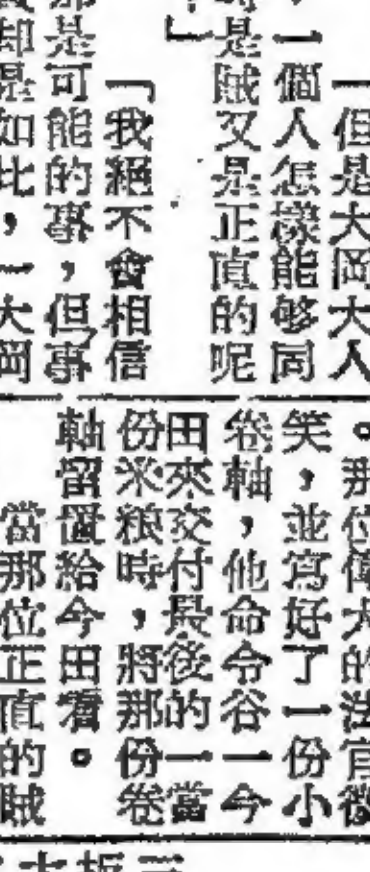 「但是大岡大人
，一個人怎樣能够同
時是賊又是正直的呢
？」
「我絕不會相信
那是可能的事，但事
却是如此，」大岡
。那位偉大的法官微
笑，並寫好了一份小
卷軸，他命令谷一今
田來交付最後的一當
份米粮時，將那份卷
軸留置給今田看。
當那位正直的賊